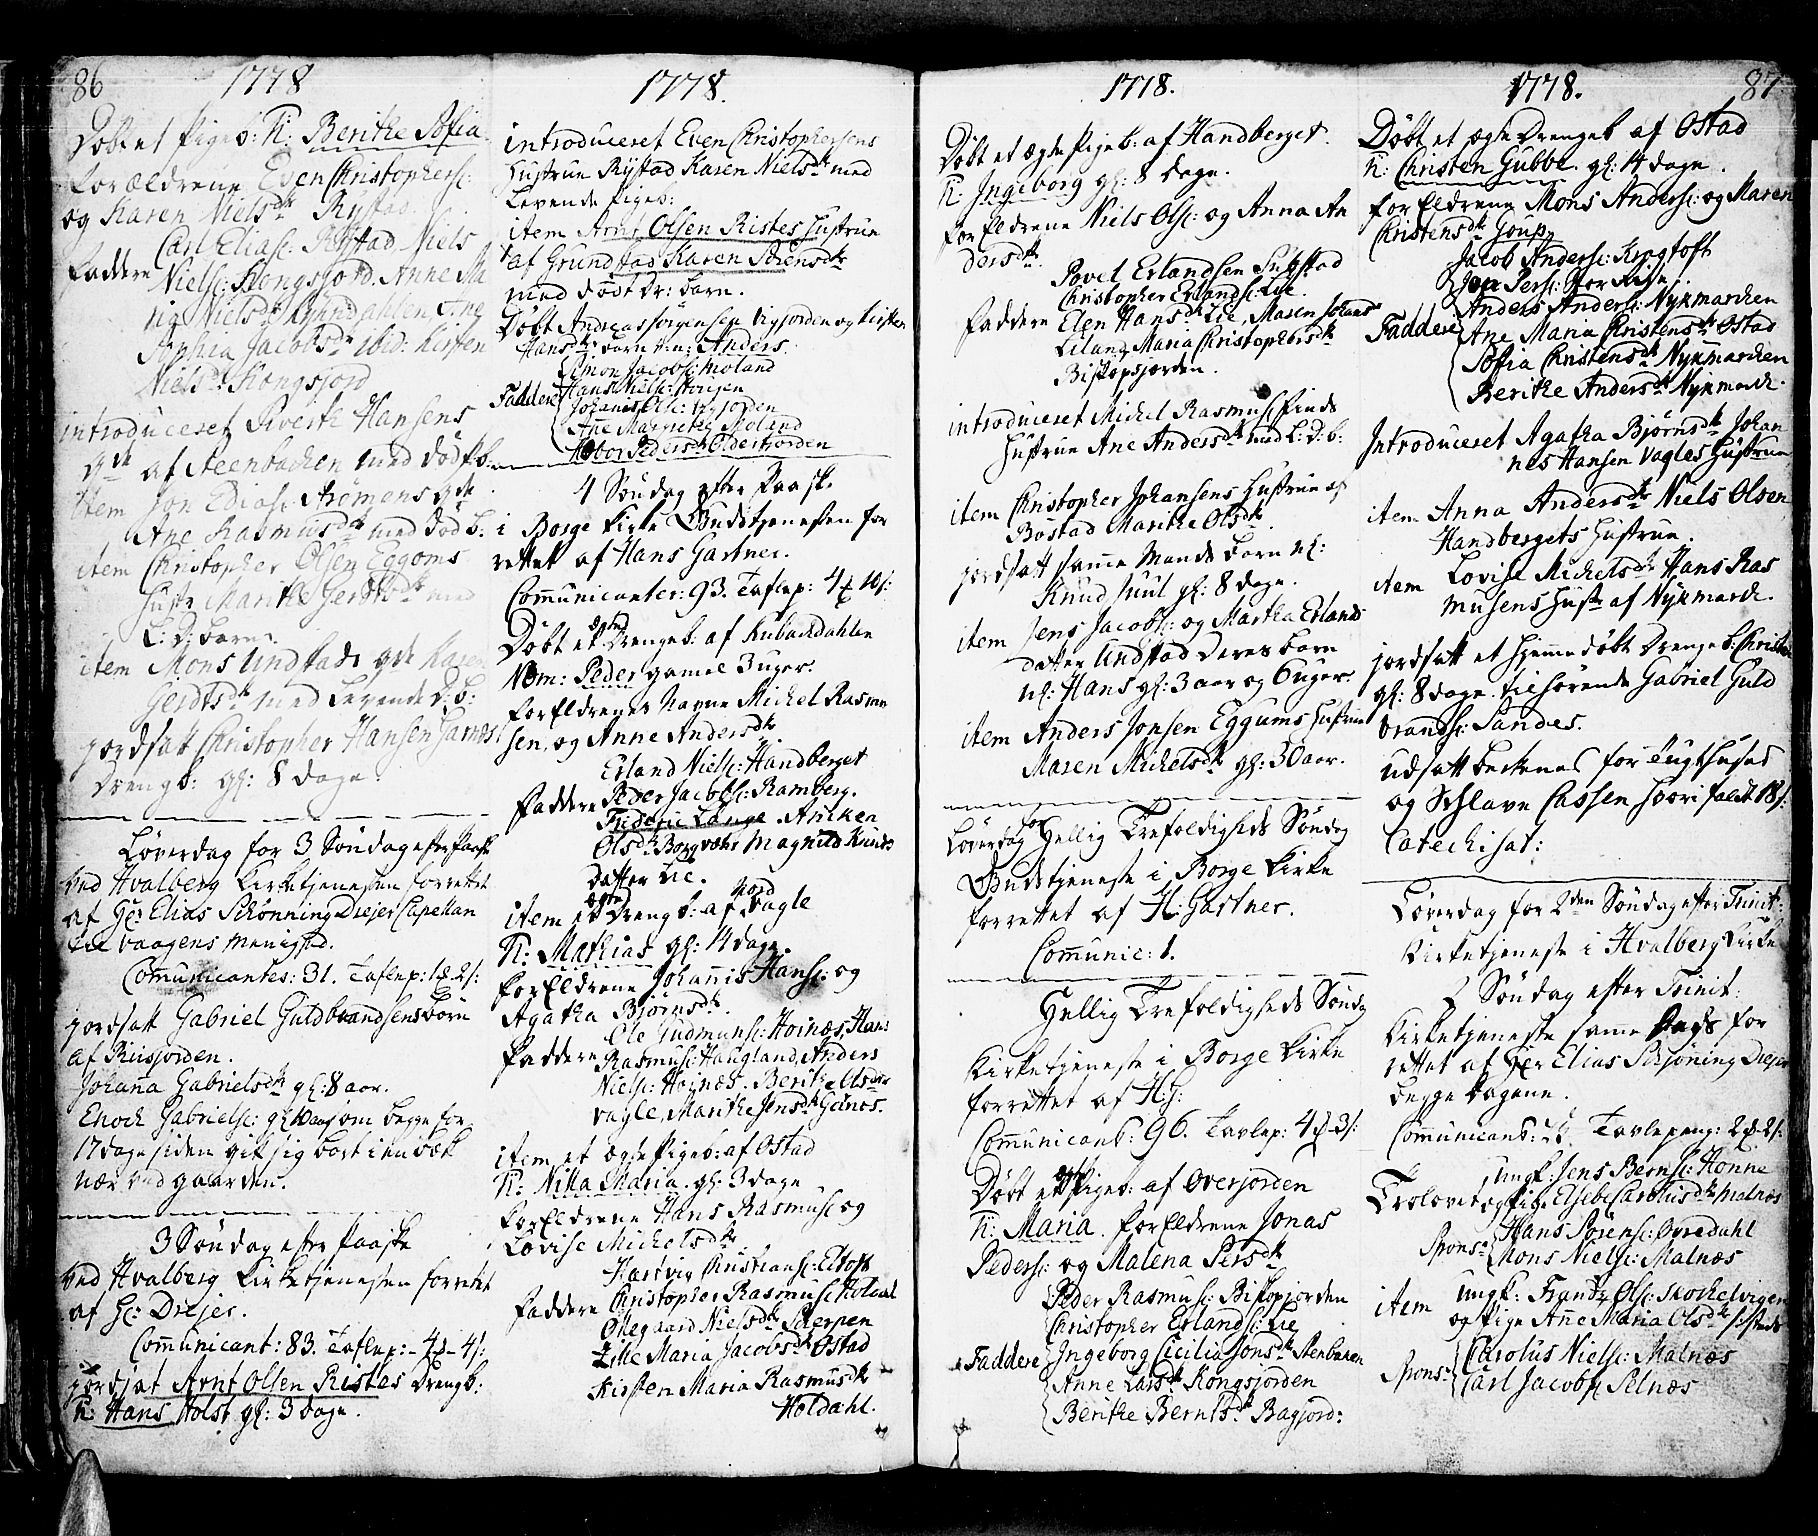 86 1778
Döbt et Pigeb: N: Berithe Sofia
Forældrene Even Christophersc:
og Karen Nielsdr Rystad
Carl Eliasc. Rystad Niels
Faddere Nielsc: Kongsjord. Anne Ma
ria Nielsdr Ane
Sophia Jacobsdr ibid: Kirsten
Nielsdr Kongsjord
introduceret Siverth Hansens
qde af Steenbachen med dödfb.
Item Jon Ediasc Strömens qde
Ane Rasmusdr med död b:
item Christopher Olsen Eggoms
Hustr Marithe Gerdtsdr med
L: D: barn
item Mons Undstads qde Karen
Gerdtsdr med Levende D: B:
jordsatt Christopher Hansen
Drengb: gl: 8 dage.
Löverdag for 3 Söndag efter Paaske
ved Hvalberg Kirketjenesten forrettet
af Hr Elias Schönning Drejer Capellan
til Vaagens menighed.
Comunicantes: 31. Taflep: 1 2 s:
jordsatt Gabriel Guldbrandsens börn
af Riisjorden.
Johana Gabrielsdr gl: 8 aar.
Enoch Gabrielsc: gl som begge for
17 dage siden gik sig bort i en bæk
nær ved gaarden.
3 Söndag efter Paaske
ved Hvalberg Kirketjenesten forrettet
af Hr: Drejer.
Communicant: 83. Taflep: 4 4 s:
jordsat Arnt Olsen Ristes Drengb:
N: Hans Holst gl: 3 dage.
1778.
introduceret Even Christophersens
Hustrue Rystad Karen Nielsdr med
Levende Pigeb:
item Arnt Olsen Ristes Hustrue
af Grundstad Karen Steensdr
med dödt Dr: barn.
Döbt Andreas Sörgensen Vigjorden og Kirsten
Hansdr: barn N: Anders.
Simon Jacobsc: Moland
Faddere Hans Nielsc: Hougen
Johanes Olsc: Vigjorden
Ane Margrethe Moland
Pedersdr Olderfjorden
4 Söndag efter Paaske
i Borge Kirke Gudstjenesten for
rettet af Hans Gartner.
Communicanter: 93. Taflep: 4 10 s:
Döbt et ægte Drengeb: af Kubackdahlen
Nom: Peder gamel 3 uger.
Forældrenes Navne Michel Rasmu
sen, og Anne Andersdr
Erland Nielsc: Handberget
Faddere Peder Jacobsc: Ramberg.
Frideric Lange Anichen
Olsdr Borgvær Magnild Knuds
Datter Lie.
item et ægte Drengb: af Nord Vagle
N: Mathias gl: 14 dage.
Forældrene Johannis Hansc: og
Agatha Björnsdr.
Ole Gudmunsc: Hoinæs, Hans
Faddere Rasmusc: Haugland, Anders
Nielsc: Hoinæs. Berithe Olsdr
Vagle, Marithe Jensdr Gelnæs.
item et ægte Pigeb: af Ostad
N: Nilla Maria. gl: 3 dage
Forældrene Hans Rasmusc og
Lovise Michelsdr
Hartvig Christiansc: Eltoft
Faddere Christopher Rasmusc Holdal
Ollegaard Nielsdr Skerpen
Zille Maria Jacobsdr Ostad
Kirsten Maria Rasmusdr
Holdahl.
1778.
Döbt et ægte Pigeb: af Handberget.
N: Ingeborg gl: 8 dage.
Forældrene Niels Olsc: og Anna An
dersdr.
Povel Erlandsen Sukstad
Christopher Erlandsc: Lie.
Faddere Elen Hansdr Lie, Maren Johans
Leland, Maria Christophersdr
Biskopsjorden.
introduceret Michel Rasmusc finds
Hustrue Ane Andersdr med L: D: b:
item Christopher Johansens Hustrue af
Bustad Marithe Olsdr.
jordsatt samme Mands barn N:
Knud Juul gl: 8 dage.
item Jens Jacobsc: og Martha Erlands
datter Undstad Deres barn
N: Hans gl: 3 aar og 6 uger.
item Anders Jonsen Eggums Hustrue
Maren Michelsdr gl: 30 aar.
Löverdag for Hellig Trefoldigheds Söndag
Gudstjeneste i Borge Kirke
forrettet af H: Gartner.
Communic: 1.
Hellig Trefoldigheds Söndag
Kirketjeneste i Borge Kirke
forrettet af H: G:
Communicant: 96. Tavlep: 4 3 s:
Döbt et ægte Pigeb: af Overjorden
N: Maria. Forældrene Jonas
Pedersc: og Malena Persdr
Peder Rasmusc: Biskopjorden
Christopher Erlandsc: Lie
Faddere Ingeborg Cicilia Jonsdr Stenbaken
Anne Larsdr Kongsjorden
Berithe Berntsdr Bagjord:
1778. 87
Döbt et ægte Drengeb af Ostad
N: Christen Gubbe. gl: 14 dage.
Forældrene Mons Andersc: og Maren
Christensdr Goup
Jacob Andersc: Krogtoft
Jon Persc:
Anders Andersc: Nykmarchen
Faddere Ane Maria Christensdr Ostad
Sofia Christensdr Nykmarchen
Berithe Andersdr Nykmarch.
Introduceret Agatha Björnsdr Johan
nes Hansen Vagles Hustrue
item Anna Andersdr Niels Olsen
Handbergets Hustrue.
item Lovise Michelsdr Hans Ras
musens Hustr af Nykmarch.
jordsatt et hjemmedöbt Drengeb: Christen
gl: 8 dage tilhörende Gabriel Guld
brandsc: Sandes.
udsatt beckenes for Tugthuset
og Slave Cassen hvori faldt 18 s:
Catechisat:
Löverdag for 2den Söndag efter Trinit:
Kirketjeneste i Hvalberg Kirke
2 Söndag efter Trinit:
Kirketjeneste samme Steds for
rettet af Hr Elias Schöning Drejer
begge dagene.
Communicant: Tavlepeng: 2 2 s:
ungk: Jens Berntsc: Honne
Trolovet og Pige Elsebe Carolusdr Malnæs
Spons: Hans Sörensc: Öyredahl
Mons Nielsc: Malnæs
item ungk: Frandz Olsc: Skochelvigen
og Pige Anne Maria Olsdr
Spons: Carolus Nielsc: Malnæs
Carl Jacobsc Selnæs